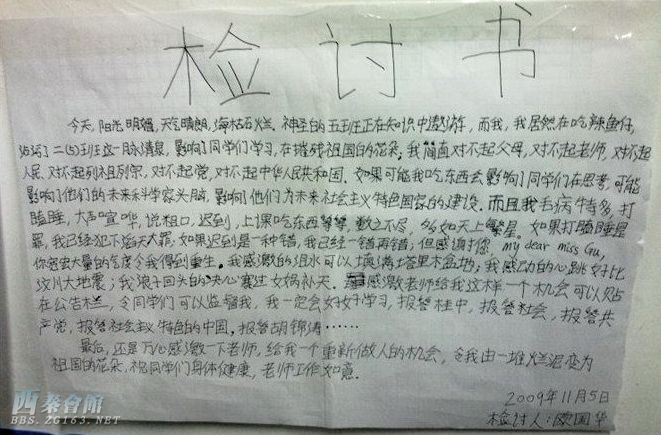 检讨书
今天,阳光明媚,天气晴朗,海枯石烂.神圣的五班正在知识中遨游,而我,我居然在吃辣鱼仔,
污染了二(5)班这一脉清泉,影响了同学们学习,在摧残祖国的花朵,我简直对不起父母,对不起老师,对不起
人民,对不起列祖列宗,对不起党,对不起中华人民共和国.如果可能我吃东西会影响了同学们在思考,可能
影响了他们的未来科学家头脑,影响了他们为未来社会主义特色国家的建设.而且我毛病特多,打
瞌睡,大声宣哗,说粗口,迟到,上课吃东西等等,数之不尽,多如天上繁星.如果打瞌睡是
罪,我已经犯下滔天大罪,如果迟到是一种错,我已经一错再错;但感谢您,my dear miss Gu,
你宽宏大量的气度令我得到重生.我感激的泪水可以填满塔里木盆地;我感动的心跳好比
汶川大地震;我浪子回头的决心赛过女娲补天.感激老师给我这样一个机会可以贴
在公告栏,令同学们可以监督我,我一定会好好学习,报答桂中,报答社会,报答共
产党,报答社会主义特色的中国,报答胡锦涛……
最后,还是万心感激一下老师,给我一个重新做人的机会,令我由一堆烂泥变为
祖国的花朵,祝同学们身体健康,老师工作如意.
2009年11月5日
检讨人:欧国华
西秦會館
BBS.ZG163.NET